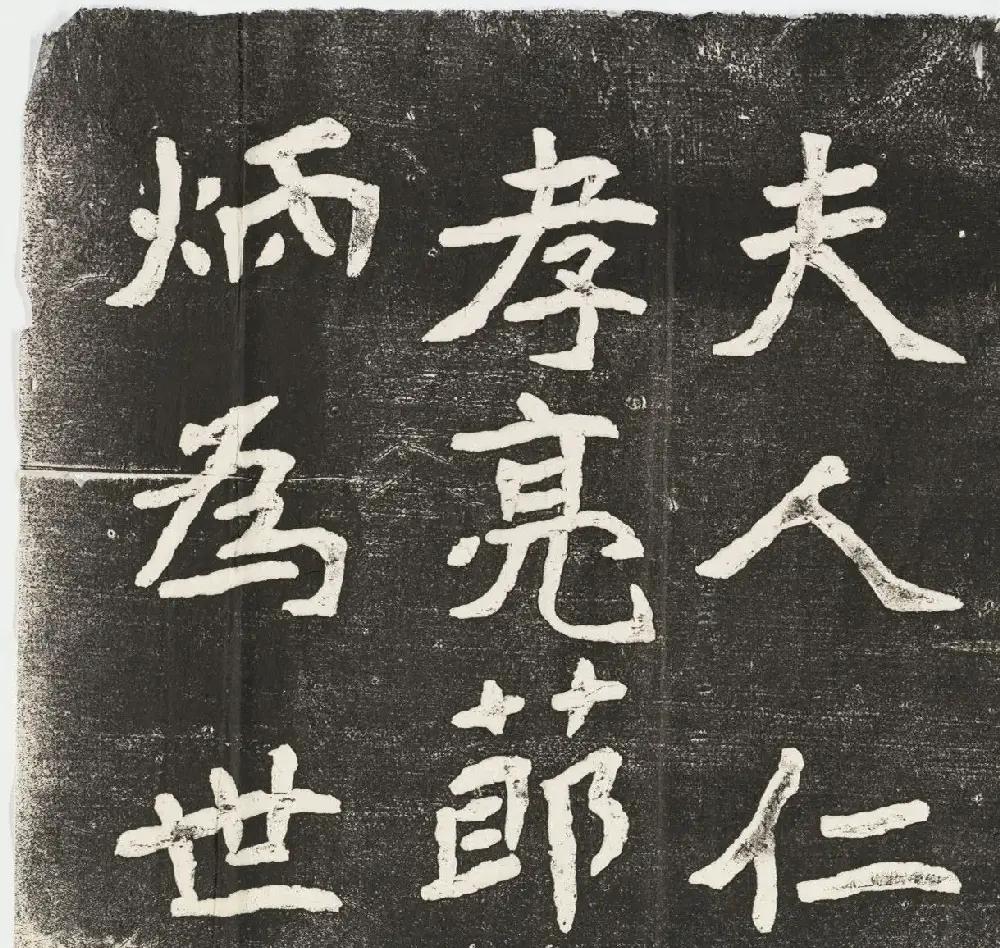 夫人仁
孝亮莭
炳為世